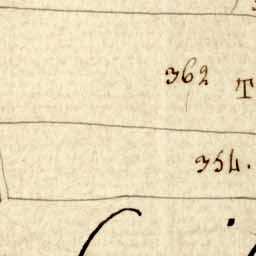 362 T
354.